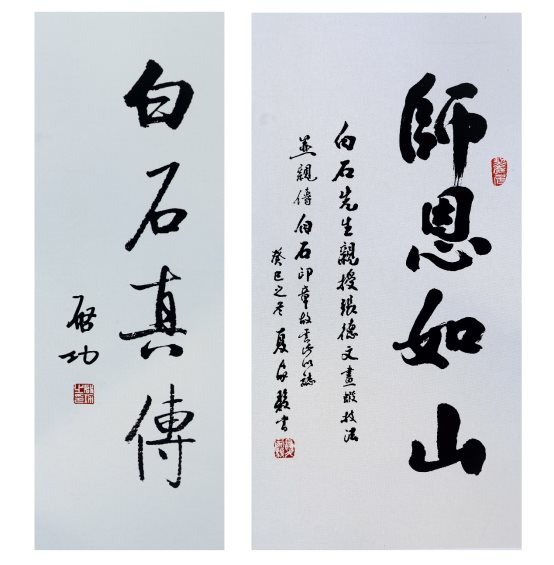 師恩如山
白石先生親授張德文畫蝦技法
並親傳白石印章故書此以誌
癸巳之冬夏海毅书
白石真傳
启功